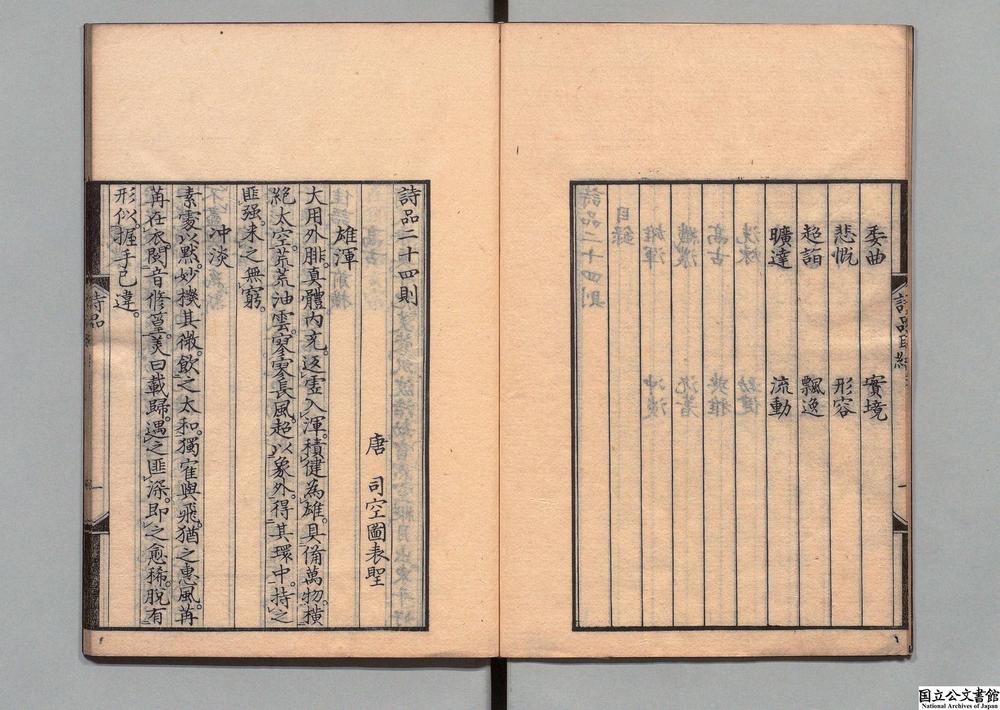 委曲　實境
悲慨　形容
超詣　飄逸
曠達　流動
詩品二十四則
唐　司空圖表聖
雄渾
大用外腓。真體內充。返虛入渾。積健為雄。具備萬物。橫
絕太空。荒荒油雲。寥寥長風。超以象外。得其環中。持之
匪强。來之無窮。
冲淡
素處以黙。妙機其微。飲之太和。獨隺與飛。猶之惠風。苒
苒在衣。閱音修篁。美曰載歸。遇之匪深。即之愈稀。脫有
形似。握手已違。
詩品
国立公文書館
National Archives of Japan